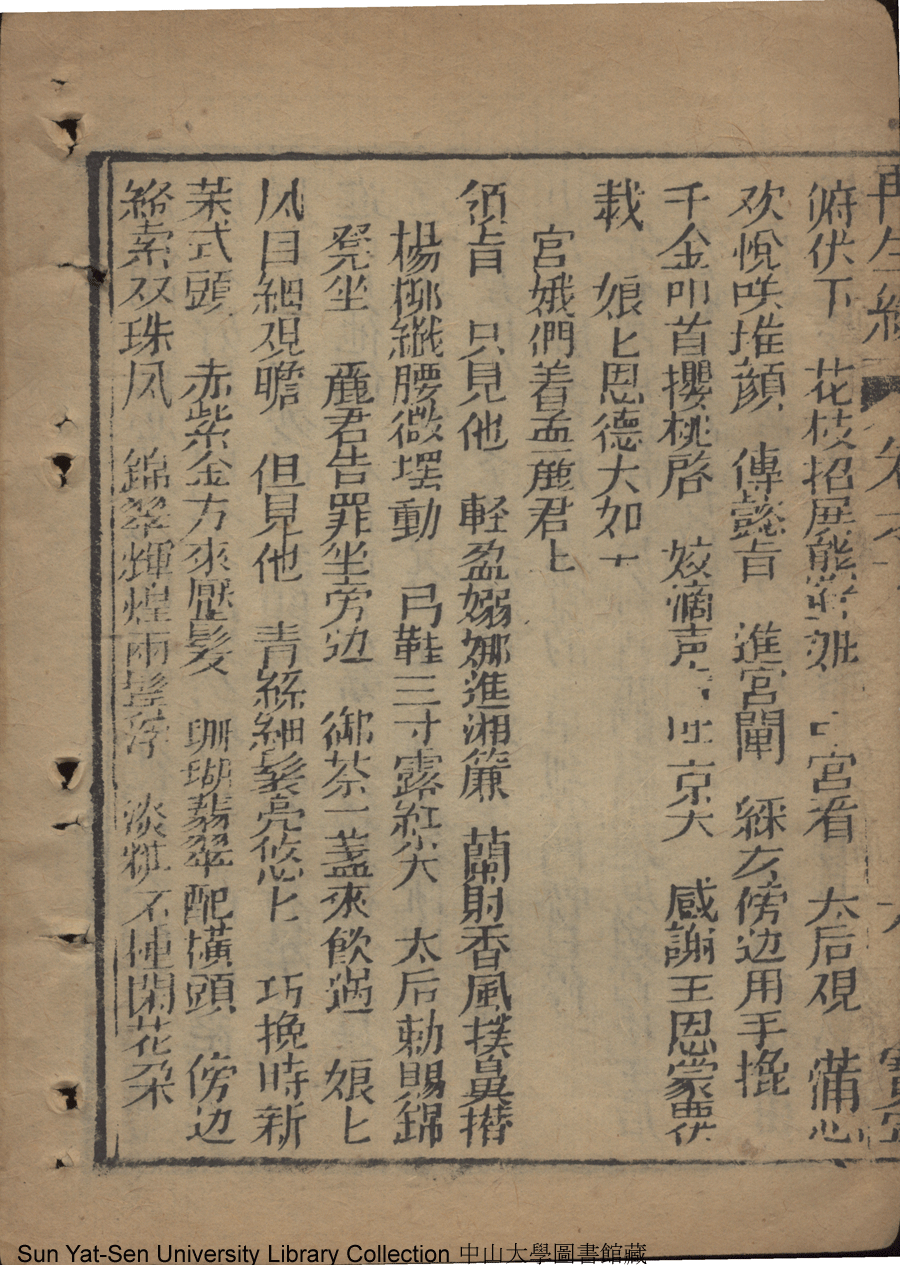 再生緣 卷六
俯伏下 花枝招展 宮看 太后覌 蒲心
欢悅咲堆顔 傳懿旨 進宮闈 綵女傍边用手挽
千金叩首攖桃啓 姣滴声 京大 感謝王恩蒙
载 娘匕恩德大如
宮娥們着孟䴡君上
領旨 只見他 軽盈嫋娜進湘簾 蘭射香風撲鼻攅
楊柳纎腰微摆動 弓鞋三寸露紅尖 太后勅賜錦
凳坐 䴡君告罪坐旁边 御茶一盞來飲過 娘匕
凤目細覌瞻 但見他 青絲細髮亮悠匕 巧挽時新
茉式頭 赤紫金方來壓髮 珊瑚翡翠配橫頭 傍边
絡索双珠凤 錦翠輝煌兩髩浮 淡粧不揷閑花朵
Sun Yat-Sen University Library Collection 中山大學圖書館藏